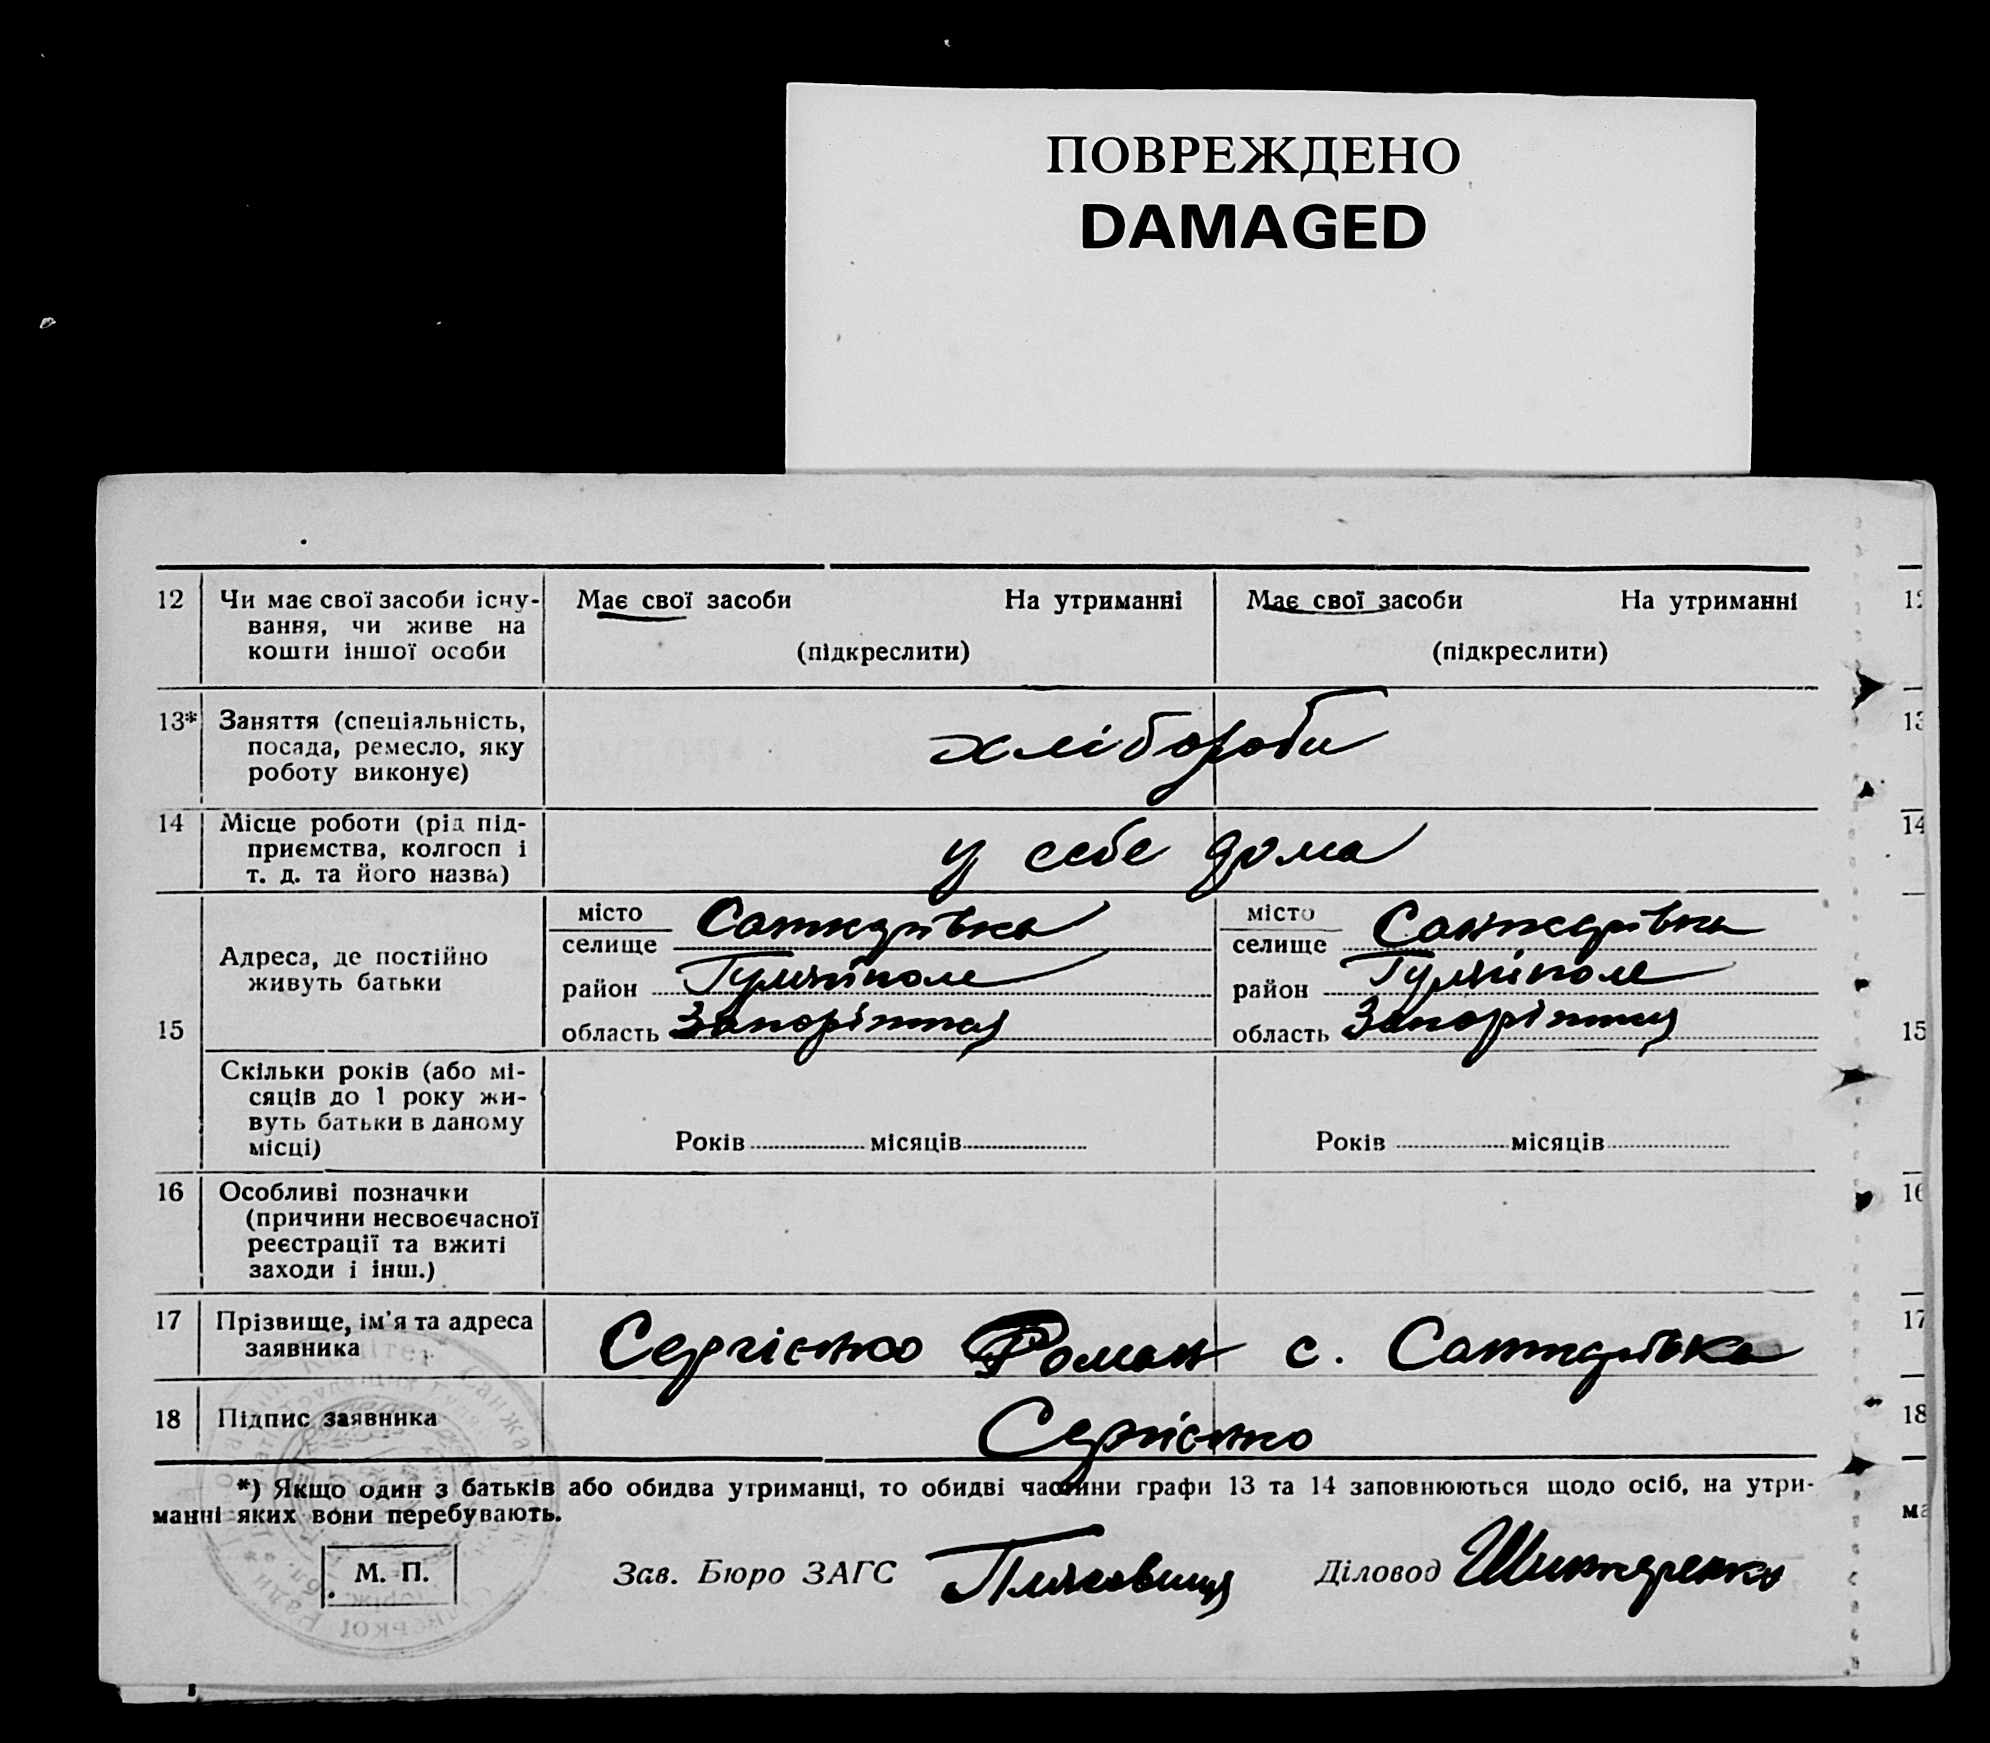 ПОВРЕЖДЕНО
DAMAGED
12 Чи має свої засоби існу-
вання, чи живе на
кошти іншої особи
Має свої засоби На утриманні
(підкреслити)
Має свої засоби На утриманні
(підкреслити)
13* Заняття (спеціальність,
посада, ремесло, яку
роботу виконує)
хлібороби
14 Місце роботи (рід під-
приємства, колгосп і
т. д. та його назва)
у себе дома
15 Адреса, де постійно
живуть батьки
місто
селище Санжарівка
район Гуляйполе
область Запоріжжя
місто
селище Санжарівка
район Гуляйполе
область Запоріжжя
Скільки років (або мі-
сяців до 1 року жи-
вуть батьки в даному
місці)
Років місяців
Років місяців
16 Особливі позначки
(причини несвоєчасної
реєстрації та вжиті
заходи і інш.)
17 Прізвище, ім'я та адреса
заявника
Сергієнко Роман с. Санжарівка
18 Підпис заявника
Сергієнко
*) Якщо один з батьків або обидва утриманці, то обидві частини графи 13 та 14 заповнюються щодо осіб, на утри-
манні яких вони перебувають.
М. П.
Зав. Бюро ЗАГС
Діловод
12
13
14
15
16
17
18